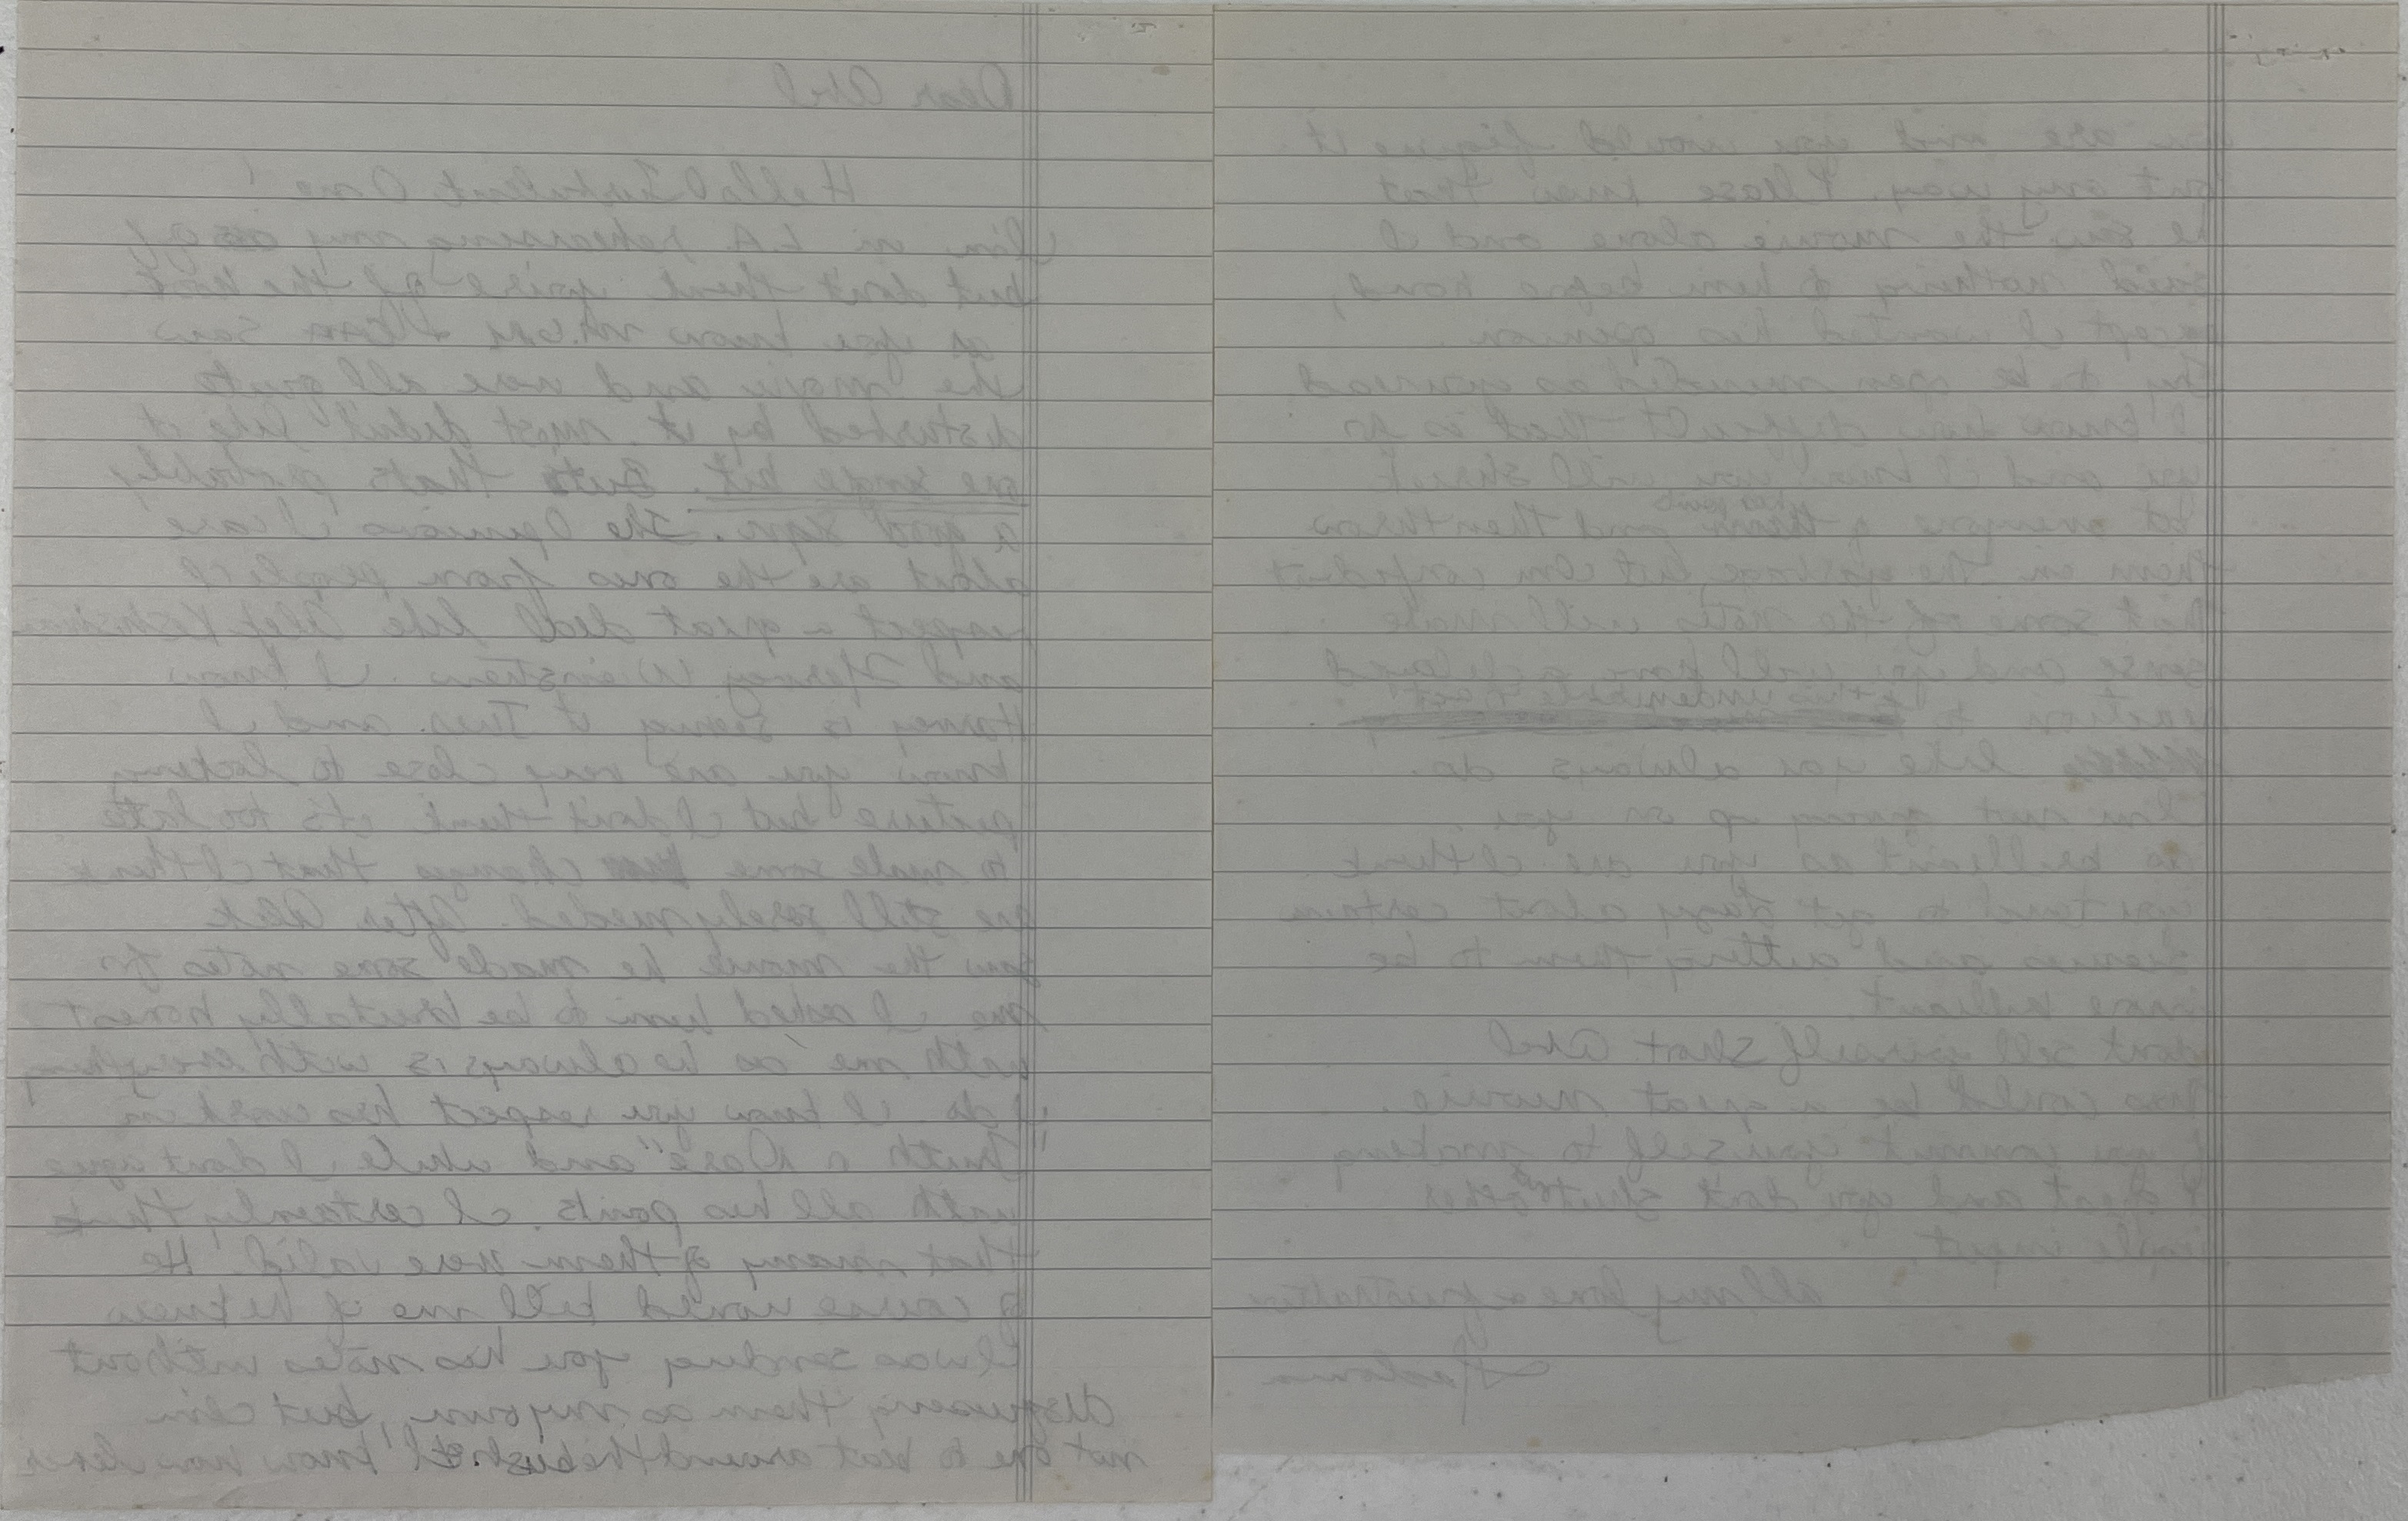 Dear Abel
Hello Turbulent One!
I'm in LA rehearsing my ass off
but don't think you're off the hook
as you know when Alek saw
the movie and were all quite
disturbed by it. most didn't like it
one single bit. But thats probably
a good sign. The Opinions I care
about are the ones from people I
respect a great deal like Alek Keshishian
and Harvey Weinstein. I know
Harvey is seeing it Tues. and I
know you are very close to locking
picture but I don't think it's too late
to make some changes that I think
are still sorely needed. After Alek
saw the movie he made some notes for
me I asked him to be brutally honest
with me as he always is with everything
I do. I know you respect his work in
"Truth or Dare" and while I dont agree
with all his points. I certainly think
that many of them were valid. He
of course would kill me if he knew
I was sending you his notes without
disguising them as my own, but I'm
not one to beat around the bush. I know how clever
you are and you would figure it
out any way. Please know that
he saw the movie alone and I
said nothing to him before hand,
except I wanted his opinion.
Try to be open minded as you read
I know how difficult that is for
you and I know you will shriek
at everyone of them and then throw
them in the garbage but I'm confident
that some of the notes will make
sense and you will have a delayed
reaction to this undeniable fact
like you always do.
I'm not giving up on you.
as brilliant as you are I think
you tend to get lazy about certain
scenes and cutting them to be
more brilliant.
don't sell yourself short Abel
This could be a great movie.
if you commit yourself to making
it great and you don't shut off other
people input.
all my love & frustration
Madonna